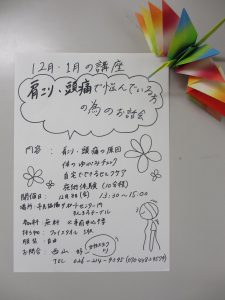 12月・1月の講座
肩こり、頭痛で悩んでいる方
の為のお話会
内容：肩こり・頭痛の原因
体のゆがみチェック
自宅でできるセルフケア
施術体験(10分程)
開催日 12月 (金) 13:30〜15:00
場所：市民協働サポートセンター内
参加料 無料
持ち物：フェイスタオル 2枚
服装：自由
お問合 西山
TEL